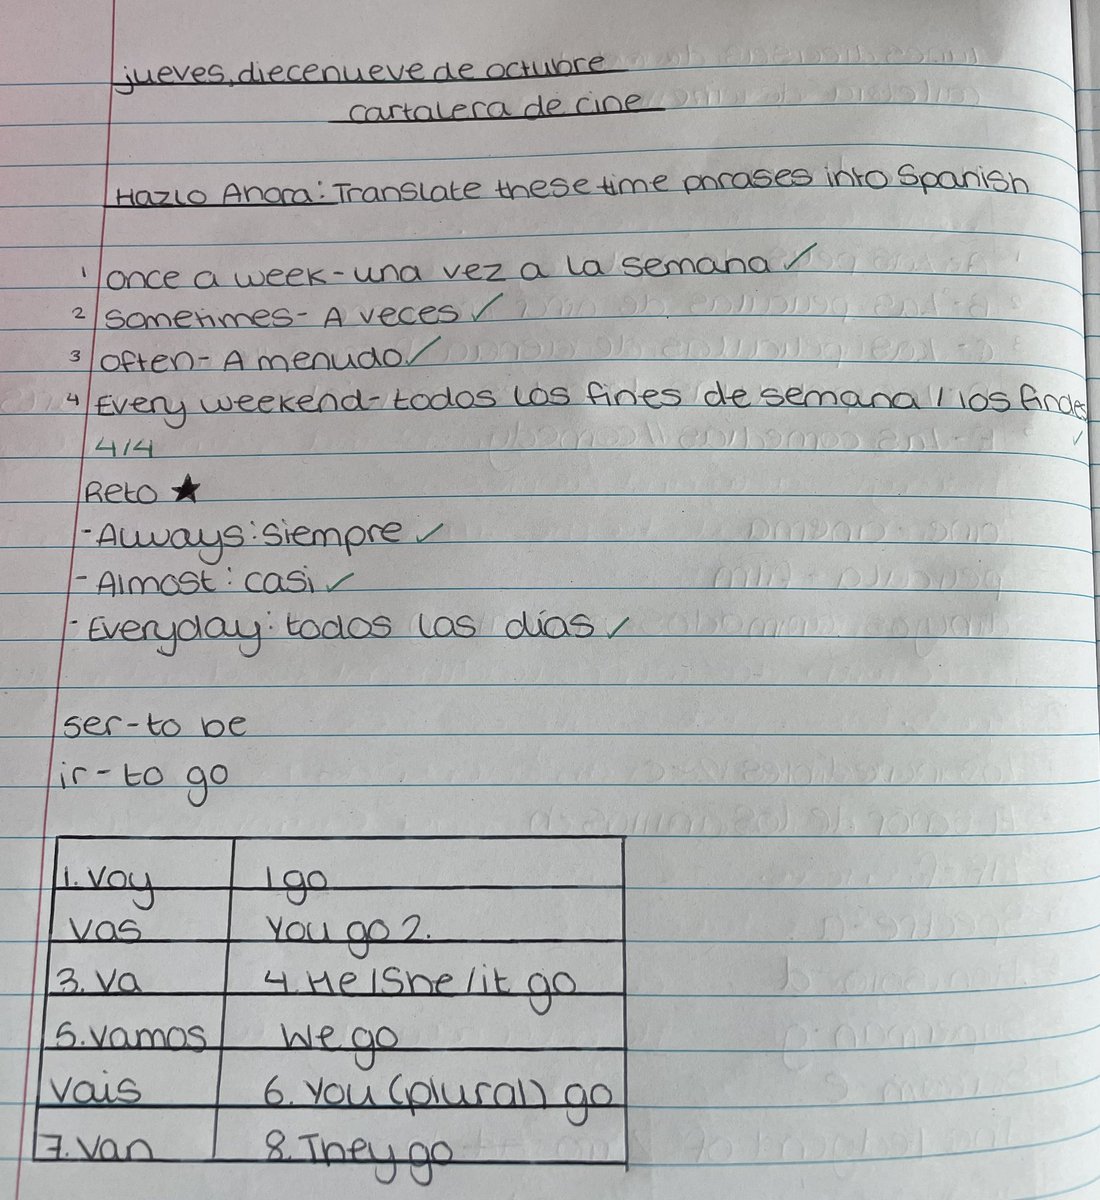 jueves, diecenueve de octubre
cartalera de cine
Hazlo Ahora: Translate these time phrases into Spanish
1 once a week - una vez a la semana ✓
2 sometimes - A veces ✓
3 often - A menudo ✓
4 Every weekend - todos los fines de semana / los findes ✓
4/4
Reto ★
- Always: siempre ✓
- Almost: casi ✓
- Everyday: todos las días ✓
ser - to be
ir - to go
1. voy I go
vas you go 2.
3. va 4. He/She/it go
5. vamos we go
vais 6. you (plural) go
7. van 8. They go